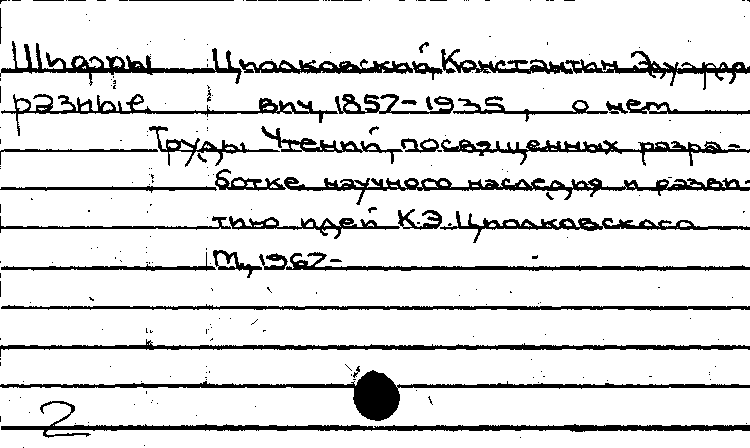 Шифры Циолковский, Константин Эдуардо
разные вич, 1857-1935, о нем.
Труды Чтений, посвященных разра-
ботке научного наследия и разви-
тию идей К.Э.Циолковского
М., 1967-
2